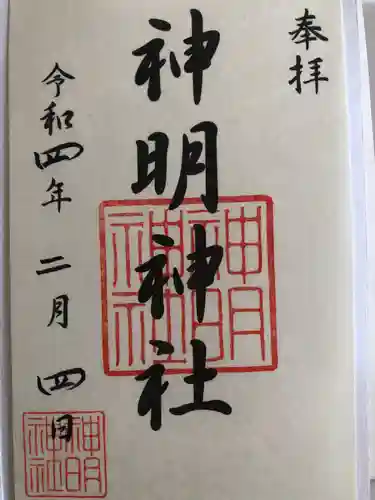 奉拝
神明神社
令和四年二月四日
神明神社
神明神社